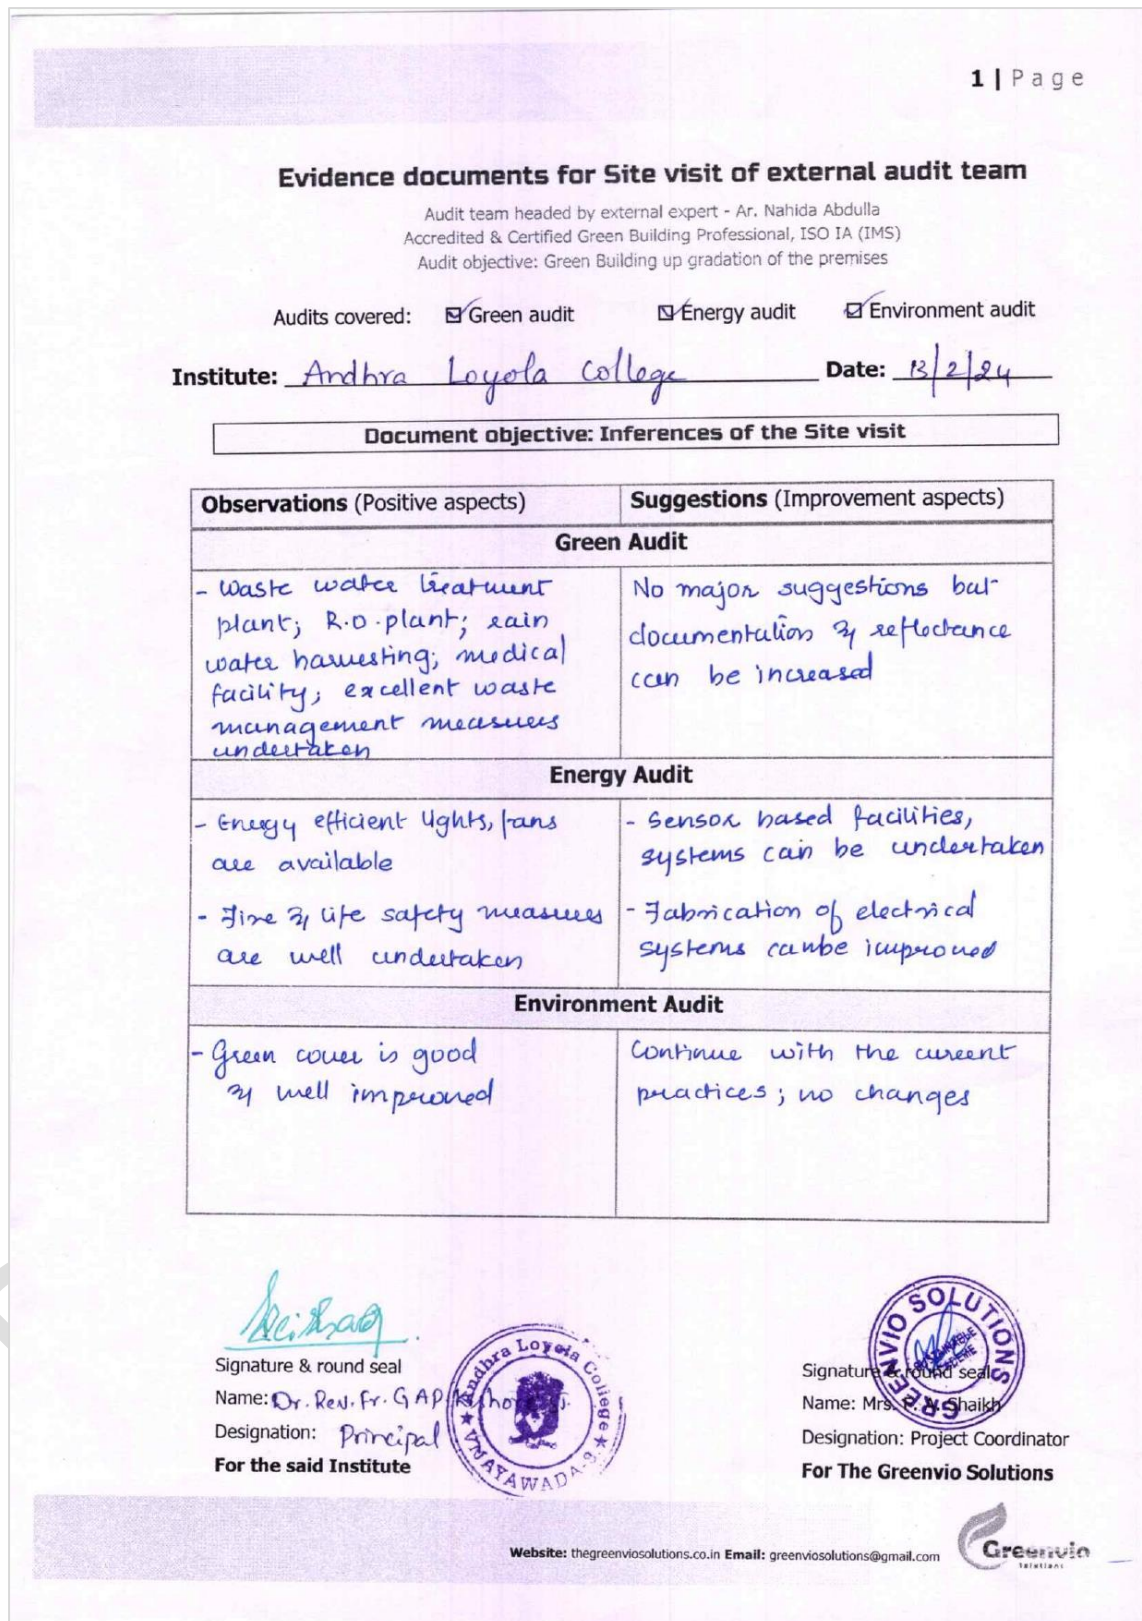 1 | Page
Evidence documents for Site visit of external audit team
Audit team headed by external expert - Ar. Nahida Abdulla
Accredited & Certified Green Building Professional, ISO IA (IMS)
Audit objective: Green Building up gradation of the premises
Audits covered: ☑ Green audit ☑ Energy audit ☑ Environment audit
Institute: Andhra Loyola College Date: 13/2/24
Document objective: Inferences of the Site visit
Observations (Positive aspects) Suggestions (Improvement aspects)
Green Audit
- Waste water treatment
plant; R.O. plant; rain
water harvesting; medical
facility; excellent waste
management measures
undertaken
No major suggestions but
documentation & reflectance
can be increased
Energy Audit
- Energy efficient lights, fans
are available
- Fire & life safety measures
are well undertaken
- Sensor based facilities,
systems can be undertaken
- Fabrication of electrical
systems can be improved
Environment Audit
- Green cover is good
& well improved
Continue with the current
practices; no changes
Signature & round seal
Name: Dr. Rev. Fr. GAP
Designation: Principal
For the said Institute
Andhra Loyola College
VIJAYAWADA-8
GREENVIO SOLUTIONS
Signature & round seal
Name: Mrs. Shaikh
Designation: Project Coordinator
For The Greenvio Solutions
Website: thegreenviosolutions.co.in Email: greenviosolutions@gmail.com
Greenvio
Solutions